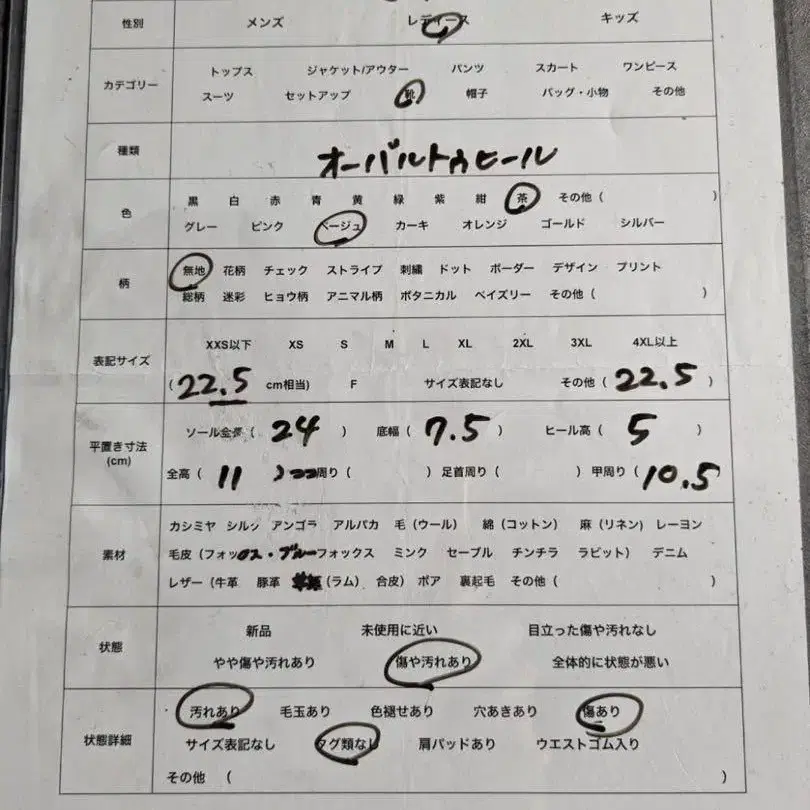 性別 メンズ レディース キッズ
カテゴリー
トップス ジャケット/アウター パンツ スカート ワンピース
スーツ セットアップ 靴 帽子 バッグ・小物 その他
種類 オーバルトゥヒール
色
黒 白 赤 青 黄 緑 紫 紺 茶 その他 ( )
グレー ピンク ベージュ カーキ オレンジ ゴールド シルバー
柄
無地 花柄 チェック ストライプ 刺繍 ドット ボーダー デザイン プリント
総柄 迷彩 ヒョウ柄 アニマル柄 ボタニカル ペイズリー その他 ( )
表記サイズ
XXS以下 XS S M L XL 2XL 3XL 4XL以上
( 22.5 cm相当) F サイズ表記なし その他 ( 22.5 )
平置き寸法
(cm)
ソール全長 ( 24 ) 底幅 ( 7.5 ) ヒール高 ( 5 )
全高 ( 11 ) 周り ( ) 足首周り ( ) 甲周り ( 10.5
素材
カシミヤ シルク アンゴラ アルパカ 毛 (ウール) 綿 (コットン) 麻 (リネン) レーヨン
毛皮 (フォックス・ブルーフォックス ミンク セーブル チンチラ ラビット) デニム
レザー (牛革 豚革 (ラム) 合皮) ボア 裏起毛 その他 ( )
状態
新品 未使用に近い 目立った傷や汚れなし
やや傷や汚れあり 傷や汚れあり 全体的に状態が悪い
状態詳細
汚れあり 毛玉あり 色褪せあり 穴あきあり 傷あり
サイズ表記なし タグ類なし 肩パッドあり ウエストゴム入り
その他 ( )